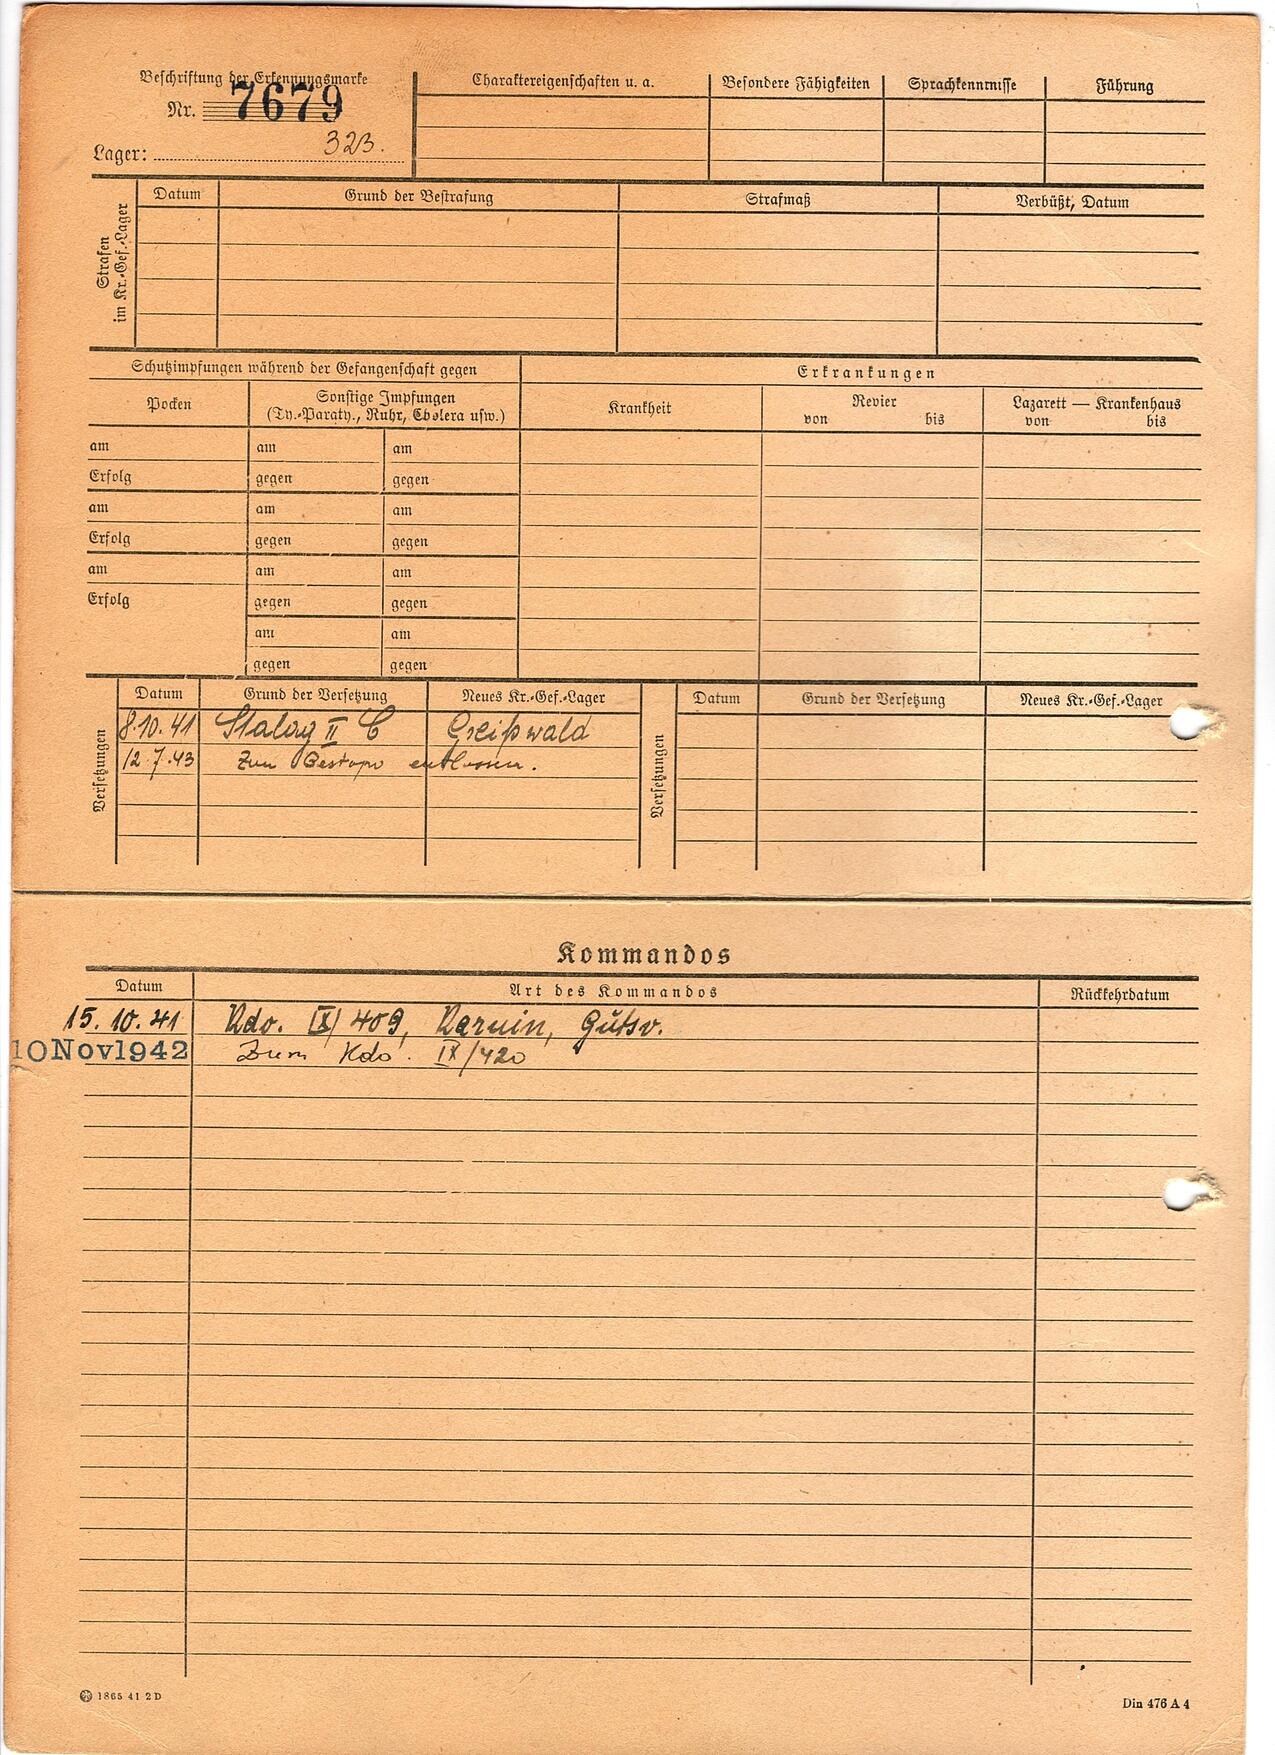 Beschriftung der Erkennungsmarke
Nr. 7679
Lager: 323.
Charaktereigenschaften u. a.
Besondere Fähigkeiten
Sprachkenntnisse
Führung
Strafen im Kr.-Gef.-Lager
Datum
Grund der Bestrafung
Strafmaß
Verbüßt, Datum
Schutzimpfungen während der Gefangenschaft gegen
Erkrankungen
Pocken
Sonstige Impfungen
(Ty.-Paraty., Ruhr, Cholera usw.)
Krankheit
Revier
von bis
Lazarett — Krankenhaus
von bis
am am am
Erfolg gegen gegen
am am am
Erfolg gegen gegen
am am am
Erfolg gegen gegen
am am
gegen gegen
Versetzungen
Datum Grund der Versetzung Neues Kr.-Gef.-Lager
8.10.41 Stalag II C Greifswald
12.7.43 Zur Gestapo entlassen.
Versetzungen
Datum Grund der Versetzung Neues Kr.-Gef.-Lager
Kommandos
Datum Art des Kommandos Rückkehrdatum
15.10.41 Kdo. IX/409, Karuin, Gutsv.
10 Nov 1942 Zum Kdo. IX/420
1865 41 2 D
Din 476 A 4